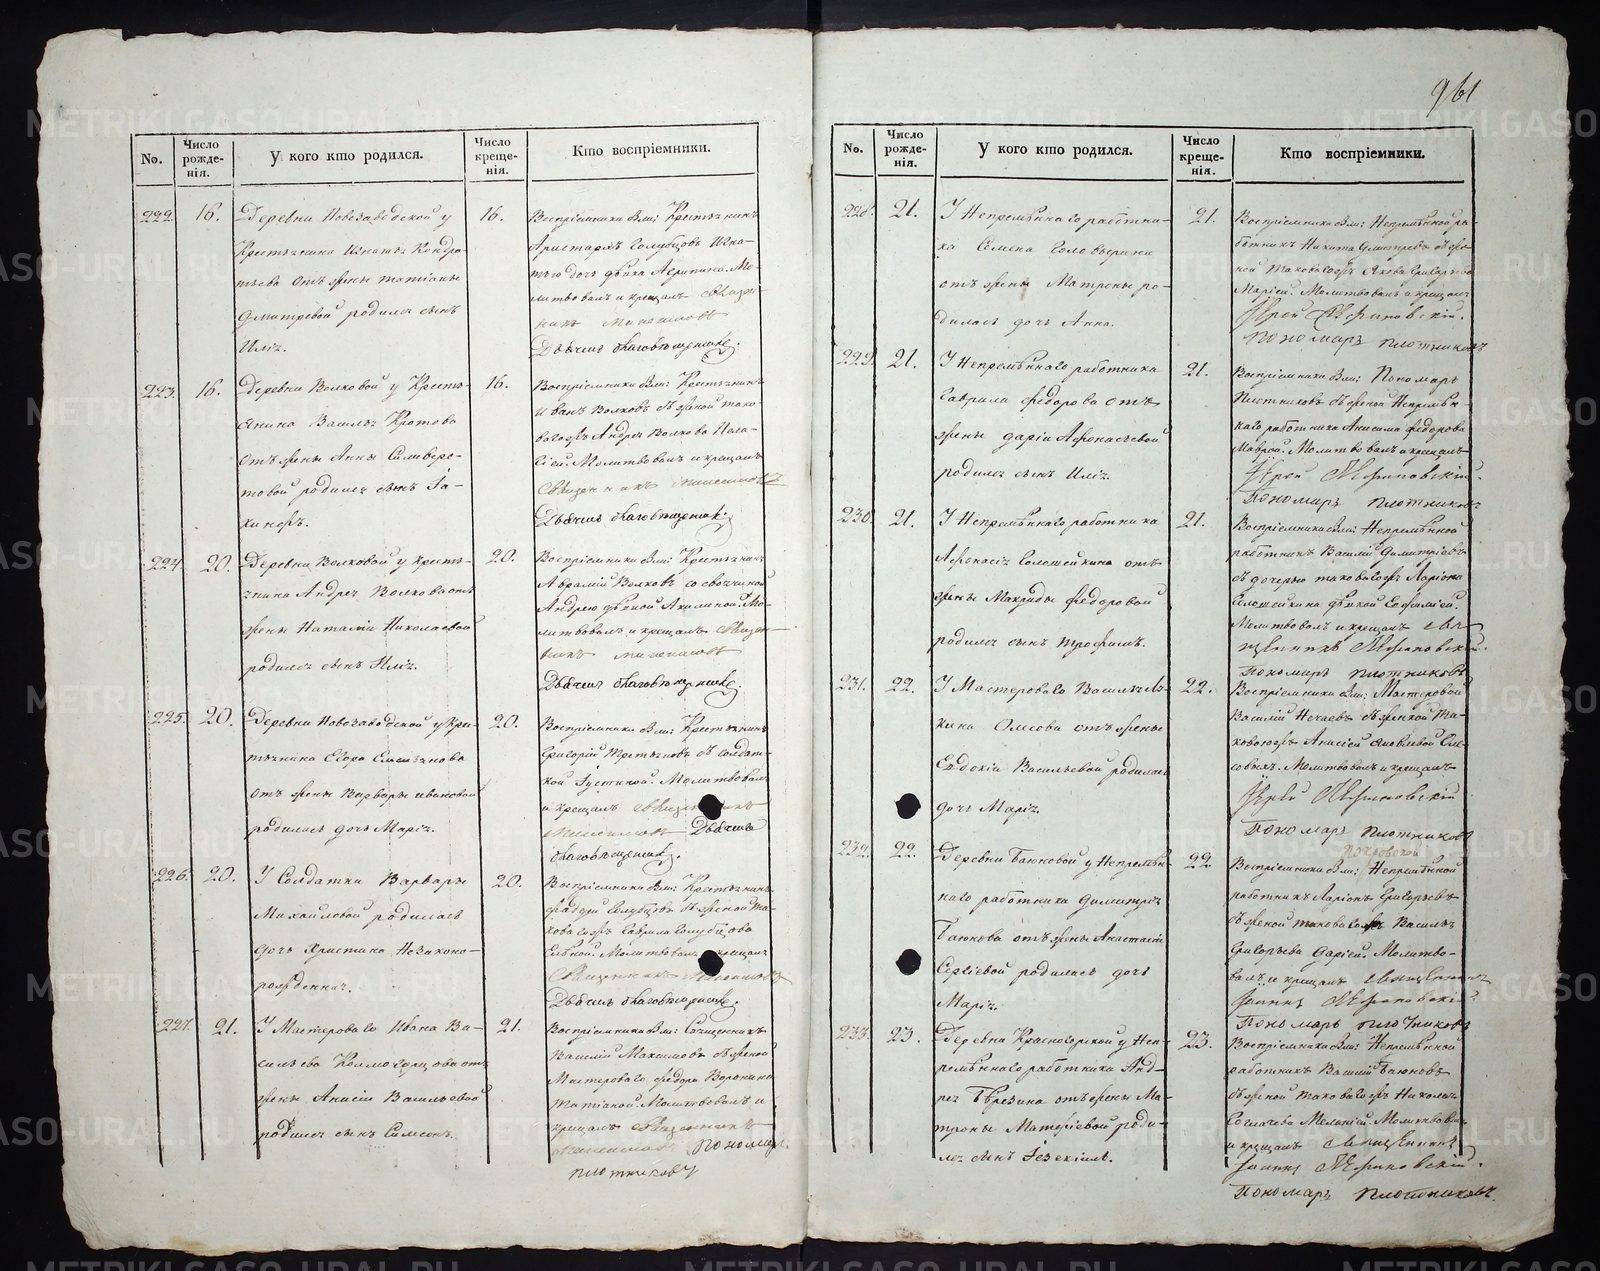 961
No.
Число рожде-нія.
У кого кто родился.
Число креще-нія.
Кто воспріемники.
222. 16.
Деревни Новозаводской у
Крестьянина Игнатья Кондра-
тьева отъ жены татіаны
Дмитревой родился сынъ
Илія.
16.
Воспріемники были: Крестьянинъ
Аристархъ Голубцовъ Игна-
тья дочь дѣвка Агрипина. Мо-
литвовалъ и крещалъ Священ-
никъ
Дьячекъ Благовѣщенскій.
223. 16.
Деревни Волковой у Кресть-
янина Василья Кротова
отъ жены Анны Силиверс-
товой родился сынъ Іа-
кинфъ.
16.
Воспріемники были: Крестьянинъ
Иванъ Волковъ съ женой тако-
вагожъ Андрея Волкова Пела-
геей. Молитвовалъ и крещалъ
Священникъ
Дьячекъ Благовѣщенскій.
224. 20.
Деревни Волковой у Кресть-
янина Андрея Волкова отъ
жены Наталіи Николаевой
родился сынъ Илія.
20.
Воспріемники были: Крестьянинъ
Аврамій Волковъ со своячиной
Андрею дѣвкой Акилиной. Мо-
литвовалъ и крещалъ Священ-
никъ
Дьячекъ Благовѣщенскій.
225. 20.
Деревни Новозаводской у Крес-
тьянина Егора
отъ жены Варвары ивановой
родилась дочь Марія.
20.
Воспріемники были: Крестьянинъ
Григорій Третьяковъ съ солдат-
кой Густиной. Молитвовалъ
и крещалъ Священникъ
Дьячекъ
Благовѣщенскій.
226. 20.
У Солдатки Варвары
Михайловой родилась
дочь Христина Незаконо-
рожденная.
20.
Воспріемники были: Крестьянинъ
Фаддей Голубцовъ съ женой та-
ковагожъ Гаврила Голубцова
Молитвовалъ и крещалъ
Священникъ
Дьячекъ Благовѣщенскій.
227. 21.
У Мастероваго Ивана Ва-
сильева Колмогорцова отъ
жены Анисіи Васильевой
родился сынъ Симеонъ.
21.
Воспріемники были: Священникъ
Василій Максимовъ съ женой
Мастероваго Федора Воронина
Татіаной. Молитвовалъ и
крещалъ Священникъ
Пономарь
плотниковъ
No.
Число рожде-нія.
У кого кто родился.
Число креще-нія.
Кто воспріемники.
228. 21.
У Непремѣннаго работни-
ка Семена Головырина
отъ жены Матроны ро-
дилась дочь Анна.
21.
Воспріемники были: Непремѣнной ра-
ботникъ Никита Дмитревъ съ же-
ной таковагожъ Якова Григорьева
Маріей. Молитвовалъ и крещалъ
Іерей
Пономарь плотниковъ
229. 21.
У Непремѣннаго работника
Гаврила Федорова отъ
жены Даріи Афонасьевой
родился сынъ Илія.
21.
Воспріемники были: Пономарь
Плотниковъ съ женой Непремѣн-
наго работника Анисима Федорова
Маврой. Молитвовалъ и крещалъ
Іерей
Пономарь плотниковъ
230. 21.
У Непремѣннаго работника
Афонасія Соломейкина отъ
жены Макриды Федоровой
родился сынъ Трофимъ.
21.
Воспріемники были: Непремѣнной
работникъ Василій Димитріевъ
съ дочерью таковагожъ Ларіона
дѣвкой Евфиміей.
Молитвовалъ и крещалъ свя-
щенникъ
Пономарь плотниковъ
231. 22.
У Мастероваго
отъ жены
Евдокіи Васильевой родилась
дочь Марія.
22.
Воспріемники были: Мастеровой
Василій Нечаевъ съ женкой та-
ковоюжъ Анисіей Яковлевой
Молитвовалъ и крещалъ
Іерей
Пономарь плотниковъ
232. 22.
Деревни Баюковой у Непремѣн-
наго работника Димитрія
Баюкова отъ жены Анастасіи
Сергіевой родилась дочь
Марія.
22.
Покровской
Воспріемники были: Непремѣнной
работникъ Ларіонъ Григорьевъ
съ женой таковагожъ Василья
Григорьева Даріей. Молитво-
валъ и крещалъ священникъ
Іоаннъ
Пономарь плотниковъ
233. 23.
Деревни Красногорской у Неп-
ремѣннаго работника Анд-
рея Березина отъ жены Ма-
троны Матфіевой роди-
лся сынъ Іезекіиль.
23.
Воспріемники были: Непремѣнной
работникъ Василій Баюковъ
съ женой таковагожъ Николая
Меланіей. Молитвовалъ
и крещалъ священникъ
Іоаннъ
Пономарь плотниковъ.
METRIKI.GASO-URAL.RU